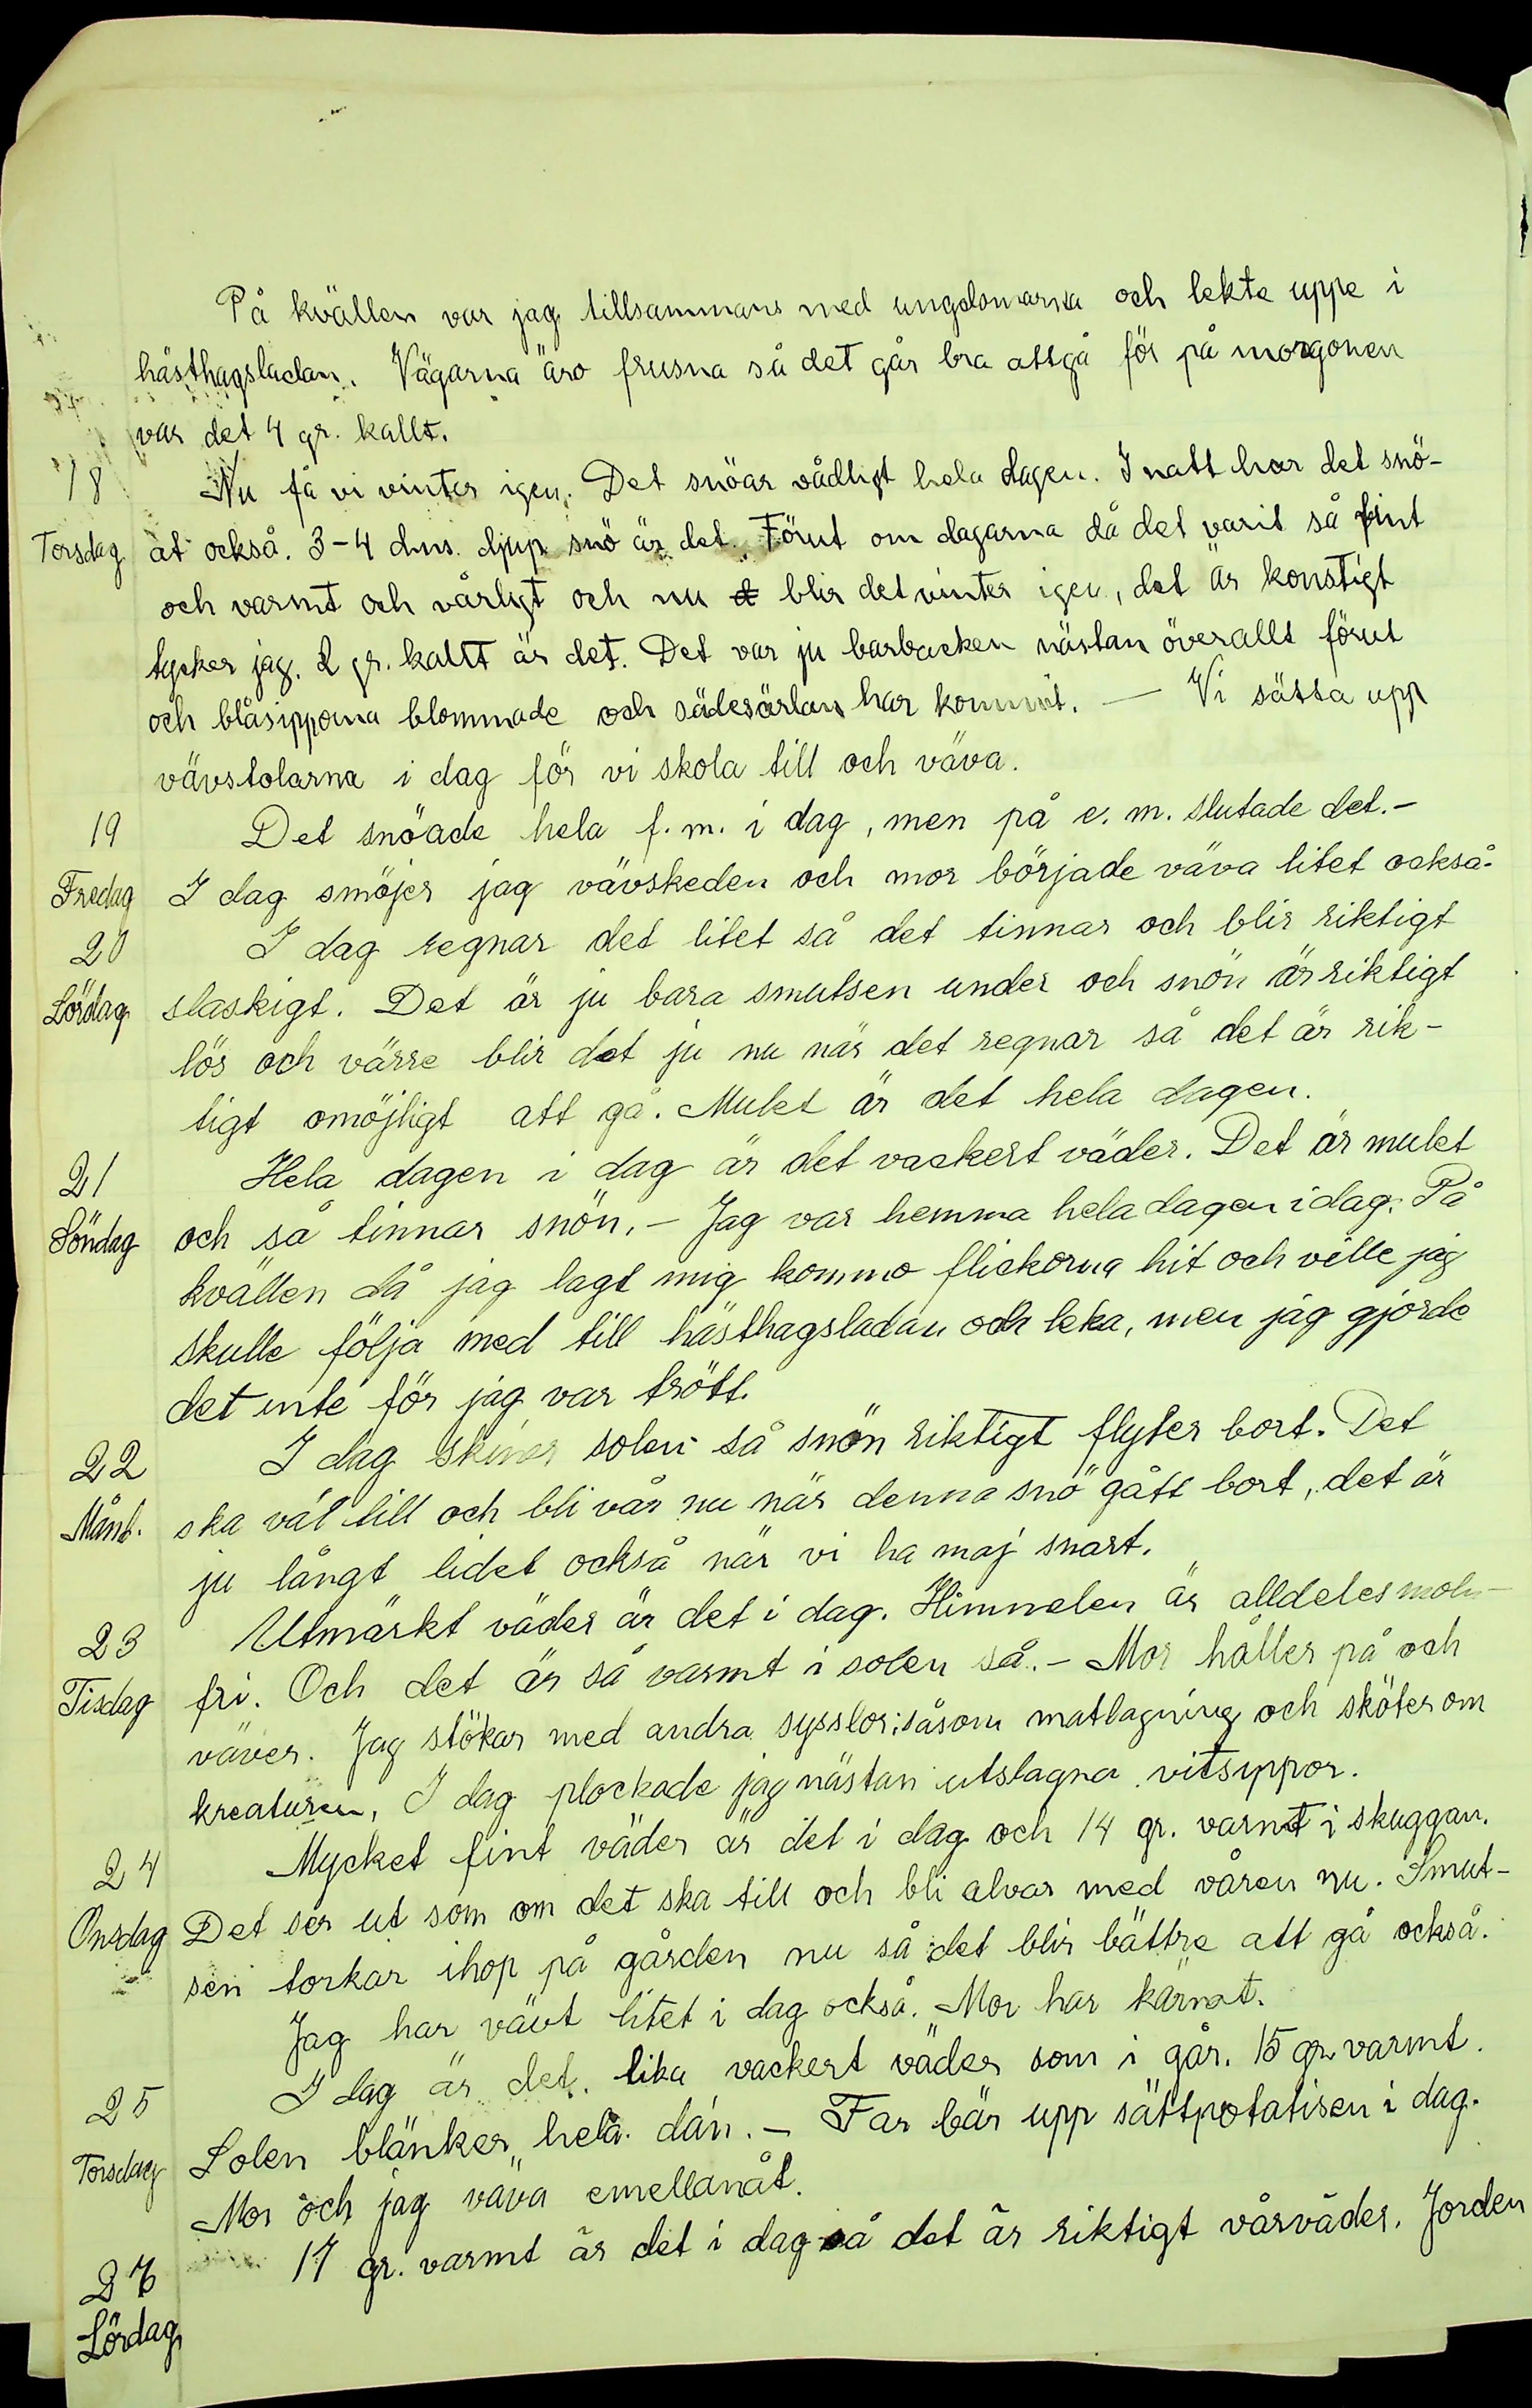 På kvällen var jag tillsammans med ungdomarna och lekte uppe i
hästhagsladan. Vägarna äro frusna så det går bra attgå för på morgonen
var det 4 gr. kallt.
18 Nu få vi vinter igen. Det snöar vådligt hela dagen. I natt har det snö-
Torsdag at också. 3-4 dms. djup snö är det. Förut om dagarna då det varit så fint
och varmt och vårligt och nu blir det vinter igen, det är konstigt
tycker jag. 2 gr. kallt är det. Det var ju barbacken nästan överallt förut
och blåsipporna blommade och sädesärlan har kommit. — Vi sätta upp
vävstolarna i dag för vi skola till och väva.
19 Det snöade hela f.m. i dag, men på e.m. slutade det.-
Fredag I dag smöjer jag vävskeden och mor började väva litet också.
20 I dag regnar det litet så det tinnar och blir riktigt
Lördag slaskigt. Det är ju bara smutsen under och snön är riktigt
lös och värre blir det ju nu när det regnar så det är rik-
tigt omöjligt att gå. Mulet är det hela dagen.
21 Hela dagen i dag är det vackert väder. Det är mulet
Söndag och så tinnar snön. - Jag var hemma hela dagen idag. På
kvällen då jag lagt mig kommo flickorna hit och ville jag
skulle följa med till hästhagsladan och leka, men jag gjorde
det inte för jag var trött.
22 I dag skiner solen så snön riktigt flyter bort. Det
Månd. ska väl till och bli vår nu när denna snö gått bort, det är
ju långt lidet också när vi ha maj snart.
23 Utmärkt väder är det i dag. Himmelen är alldeles moln-
Tisdag fri. Och det är så varmt i solen så. - Mor håller på och
väver. Jag stökar med andra sysslor; såsom matlagning och sköter om
kreaturen. I dag plockade jag nästan utslagna vitsippor.
24 Mycket fint väder är det i dag och 14 gr. varmt i skuggan.
Onsdag Det ser ut som om det ska till och bli alvar med våren nu. Smut-
sen torkar ihop på gården nu så det blir bättre att gå också.
Jag har vävt litet i dag också. Mor har kärnat.
25 I dag är det lika vackert väder som i går. 15 gr. varmt.
Torsdag Solen blänker hela dan. - Far bär upp sättpotatisen i dag.
Mor och jag väva emellanåt.
27 17 gr. varmt är det i dag så det är riktigt vårväder. Jorden
Lördag